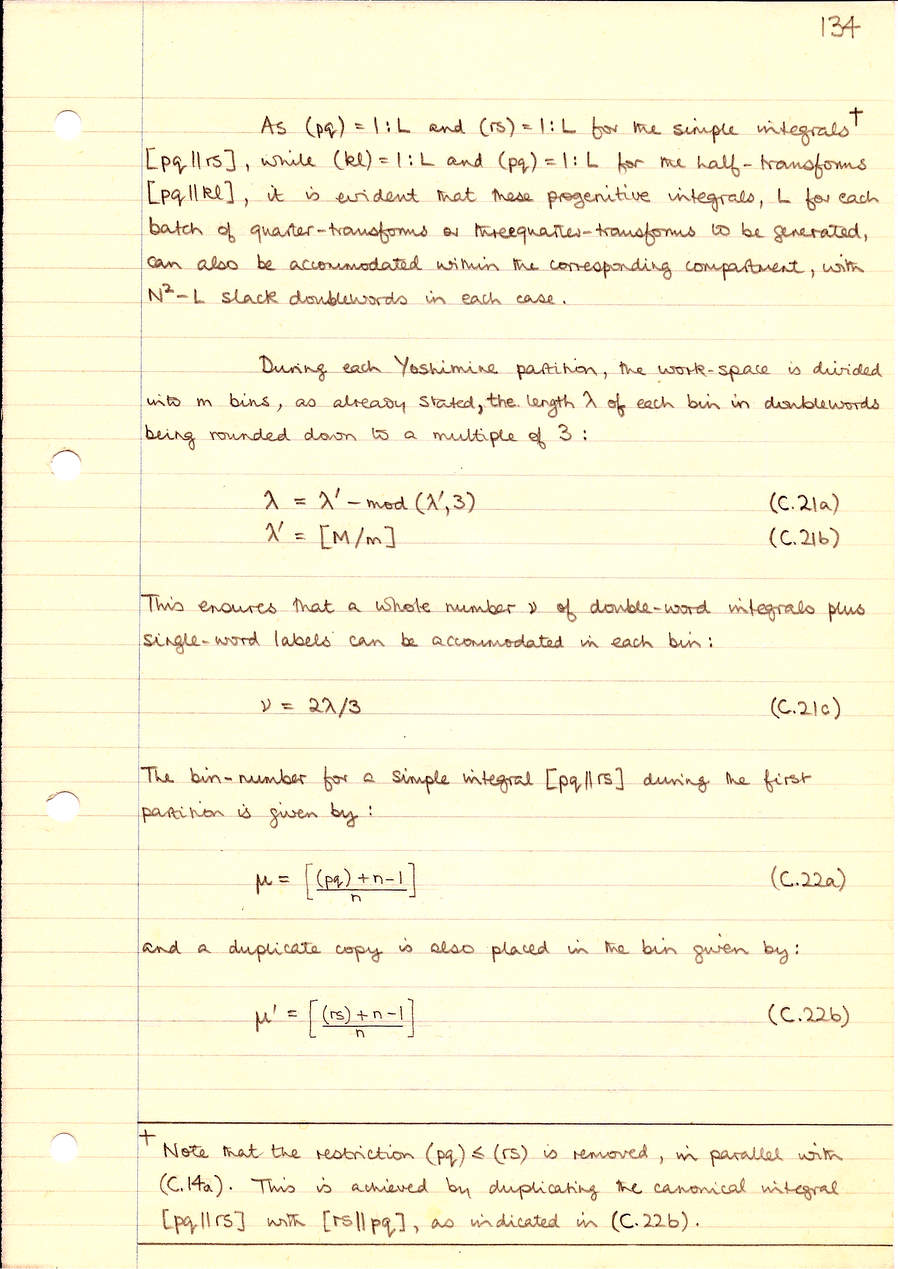 134
As (pq) = 1:L and (rs) = 1:L for the simple integrals†
[pq||rs], while (kl) = 1:L and (pq) = 1:L for the half-transforms
[pq||kl], it is evident that these progenitive integrals, L for each
batch of quarter-transforms or threequarter-transforms to be generated,
can also be accommodated within the corresponding compartment, with
N²-L slack doublewords in each case.
During each Yoshimine partition, the work-space is divided
into m bins, as already stated, the length λ of each bin in doublewords
being rounded down to a multiple of 3:
λ = λ' - mod (λ',3) (C.21a)
λ' = [M/m] (C.21b)
This ensures that a whole number ν of double-word integrals plus
single-word labels can be accommodated in each bin:
ν = 2λ/3 (C.21c)
The bin-number for a simple integral [pq||rs] during the first
partition is given by:
μ = [((pq)+n-1)/n] (C.22a)
and a duplicate copy is also placed in the bin given by:
μ' = [((rs)+n-1)/n] (C.22b)
† Note that the restriction (pq) ≤ (rs) is removed, in parallel with
(C.14a). This is achieved by duplicating the canonical integral
[pq||rs] with [rs||pq], as indicated in (C.22b).